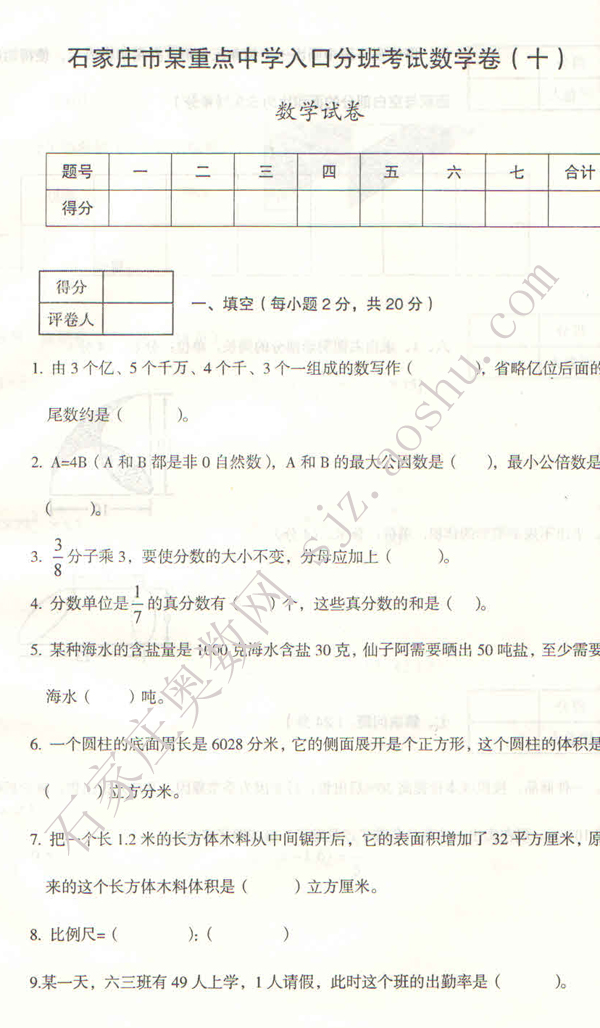 石家庄市某重点中学入口分班考试数学卷（十）
数学试卷
题号 一 二 三 四 五 六 七 合计
得分
得分
评卷人
一、填空（每小题2分，共20分）
1. 由3个亿、5个千万、4个千、3个一组成的数写作（　　），省略亿位后面的
尾数约是（　　）。
2. A=4B（A和B都是非0自然数），A和B的最大公因数是（　　），最小公倍数是
（　　）。
3. 3/8 分子乘3，要使分数的大小不变，分母应加上（　　）。
4. 分数单位是 1/7 的真分数有（　　）个，这些真分数的和是（　　）。
5. 某种海水的含盐量是1000克海水含盐30克，仙子阿需要晒出50吨盐，至少需要
海水（　　）吨。
6. 一个圆柱的底面周长是6028分米，它的侧面展开是个正方形，这个圆柱的体积是
（　　）立方分米。
7. 把一个长1.2米的长方体木料从中间锯开后，它的表面积增加了32平方厘米，原
来的这个长方体木料体积是（　　）立方厘米。
8. 比例尺=（　　）:（　　）
9.某一天，六三班有49人上学，1人请假，此时这个班的出勤率是（　　）。
石家庄奥数网 sjz.aoshu.com